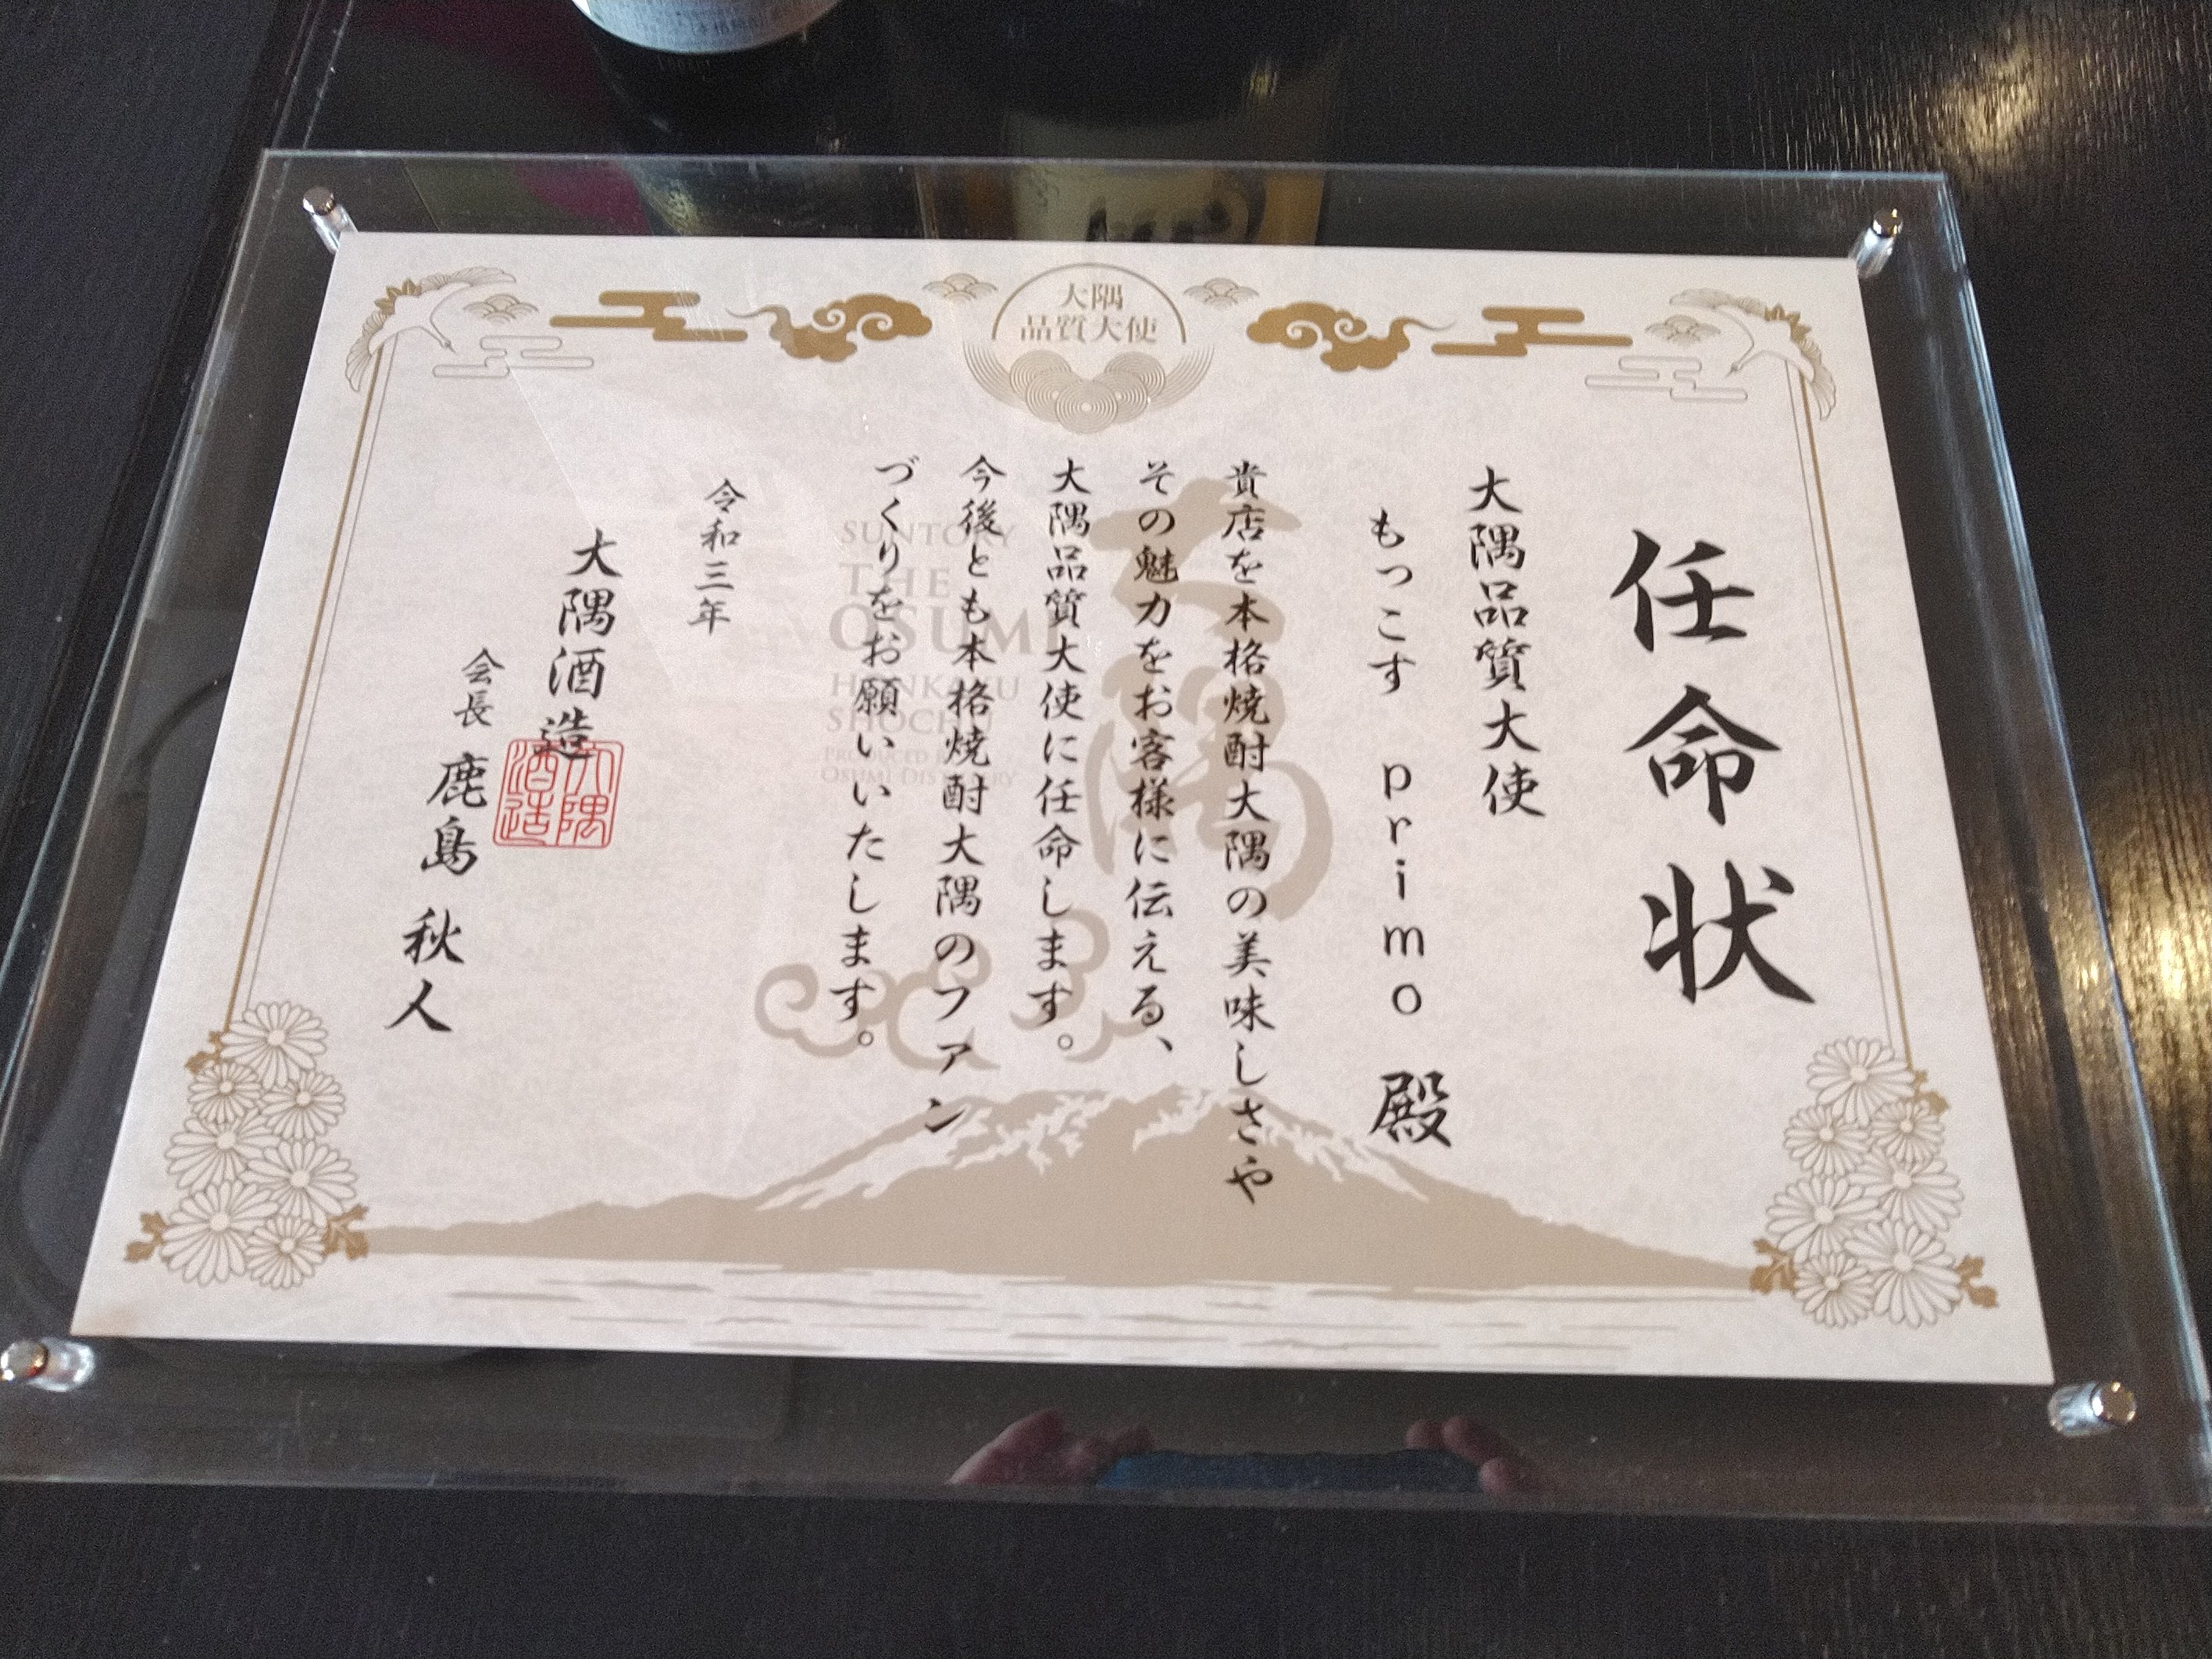 大隅
品質大使
任命状
大隅品質大使
もっこす primo 殿
貴店を本格焼酎大隅の美味しさや
その魅力をお客様に伝える、
大隅品質大使に任命します。
今後とも本格焼酎大隅のファン
づくりをお願いいたします。
令和三年
大隅酒造
会長 鹿島 秋人
大隅
酒造
大隅
SUNTORY
THE
OSUMI
HONKAKU
SHOCHU
PRODUCED BY
OSUMI DISTILLERY